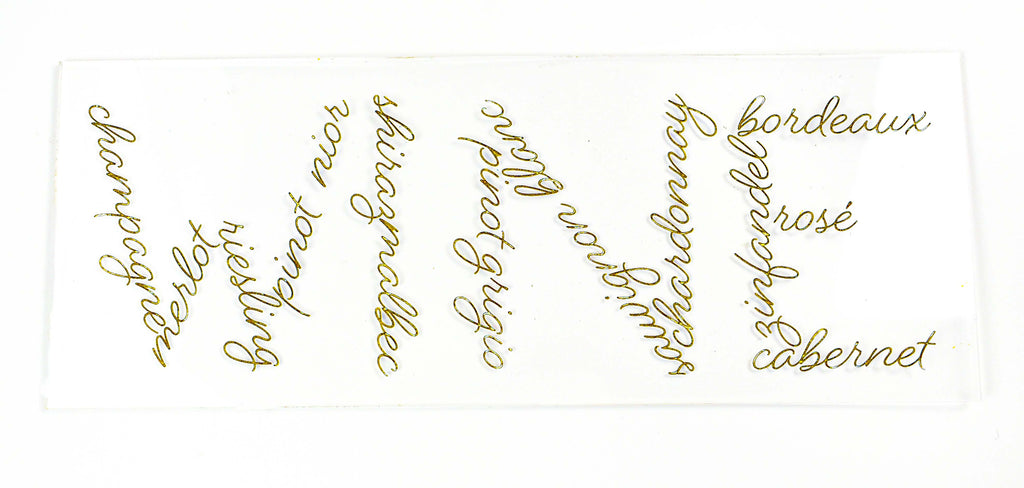 champagne
merlot
riesling
pinot nior
shiraz
malbec
pinot grigio
sauvignon blanc
chardonnay
zinfandel
bordeaux
rosé
cabernet